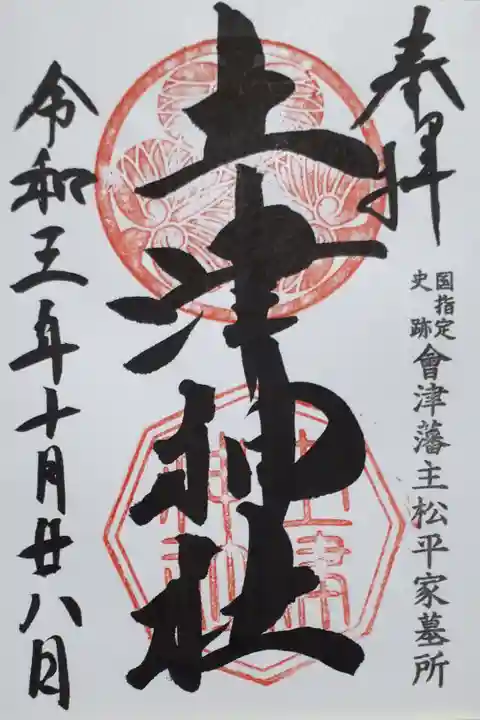 奉拝
国指定
史跡
會津藩主松平家墓所
土津神社
土津
神社
令和三年十月廿八日